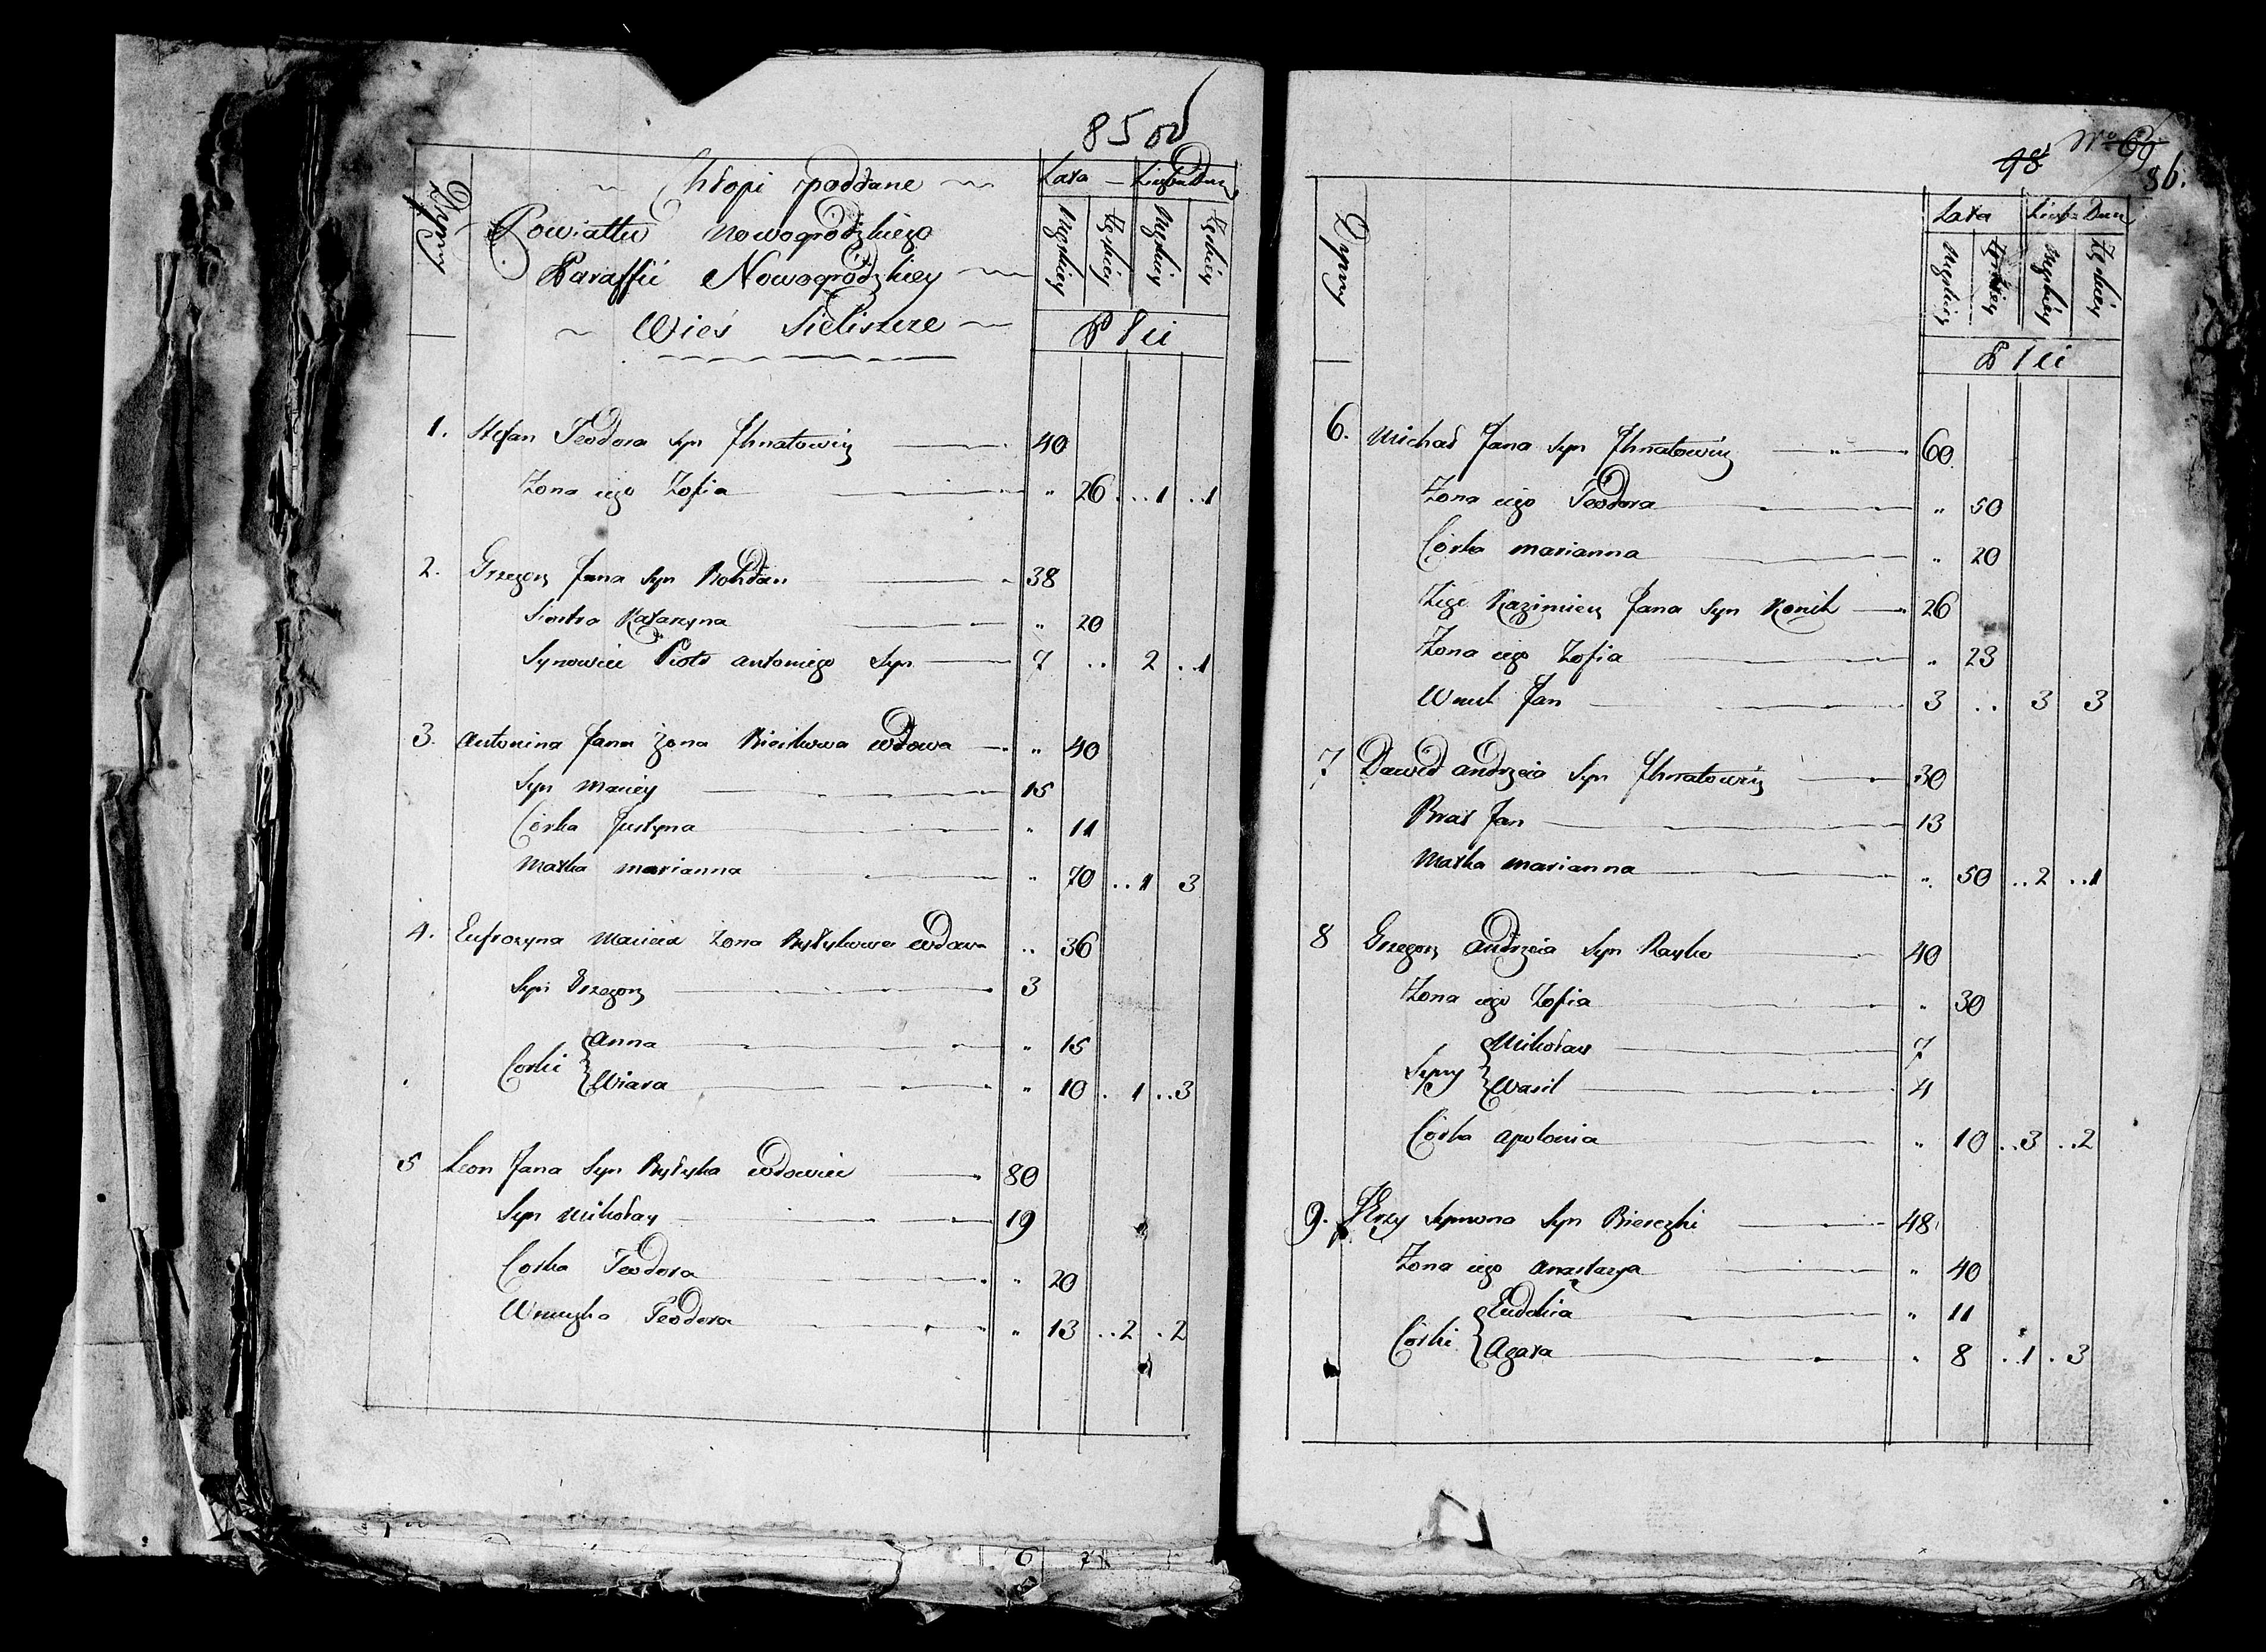 850
Dymy
Chłopi poddane
Lata Liczba Dusz
Powiattu Nowogrodzkiego
Męzkiey Żęskiey Męzkiey Żęskiey
Paraffii Nowogrodzkiey
Wieś Sieliszcze
Płci
1. Stefan Teodora Syn Jhnatowicz 40
Żona iego Zofia " 26 .. 1 .. 1
2. Grzegorz Jana Syn Bohdan 38
Siostra Katarzyna " 20
Synowiec Piotr antoniego Syn 7 .. 2 .. 1
3. Antonina Jana Żona wdowa " 40
Syn Maciey 15
Córka Justyna " 11
Matka marianna " 70 .. 1 3
4. Eufrozyna Macieia Żona wdowa .. 36
Syn Grzegorz 3
Corki { Anna " 15
{ Wiara " 10 .. 1 .. 3
5 Leon Jana Syn Bytyka wdowiec 80
Syn Mikołay 19
Corka Teodora " 20
Wnuczka Teodora " 13 .. 2 . 2
48 No 69
86.
Dymy
Lata Liczba Dusz
Męzkiey Żęskiey Męzkiey Żęskiey
Płci
6. Michał Jana Syn Jhnatowicz 60
Żona iego Teodora " 50
Córka marianna " 20
Zięć Kazimierz Jana Syn 26
Żona iego Zofia " 23
Wnuk Jan 3 .. 3 3
7 Dawid andrzeia Syn Jhnatowicz 30
Brat Jan 13
Matka marianna " 50 .. 2 .. 1
8 Grzegorz andrzeia Syn 40
Żona iego Zofia " 30
Syny { Mikołay 7
{ Wasil 4
Córka apolonia " 10 .. 3 .. 2
9. Jerzy Symona Syn 48
Żona iego anastazya " 40
Córki { Eudokia " 11
{ Agata " 8 .. 1 . 3